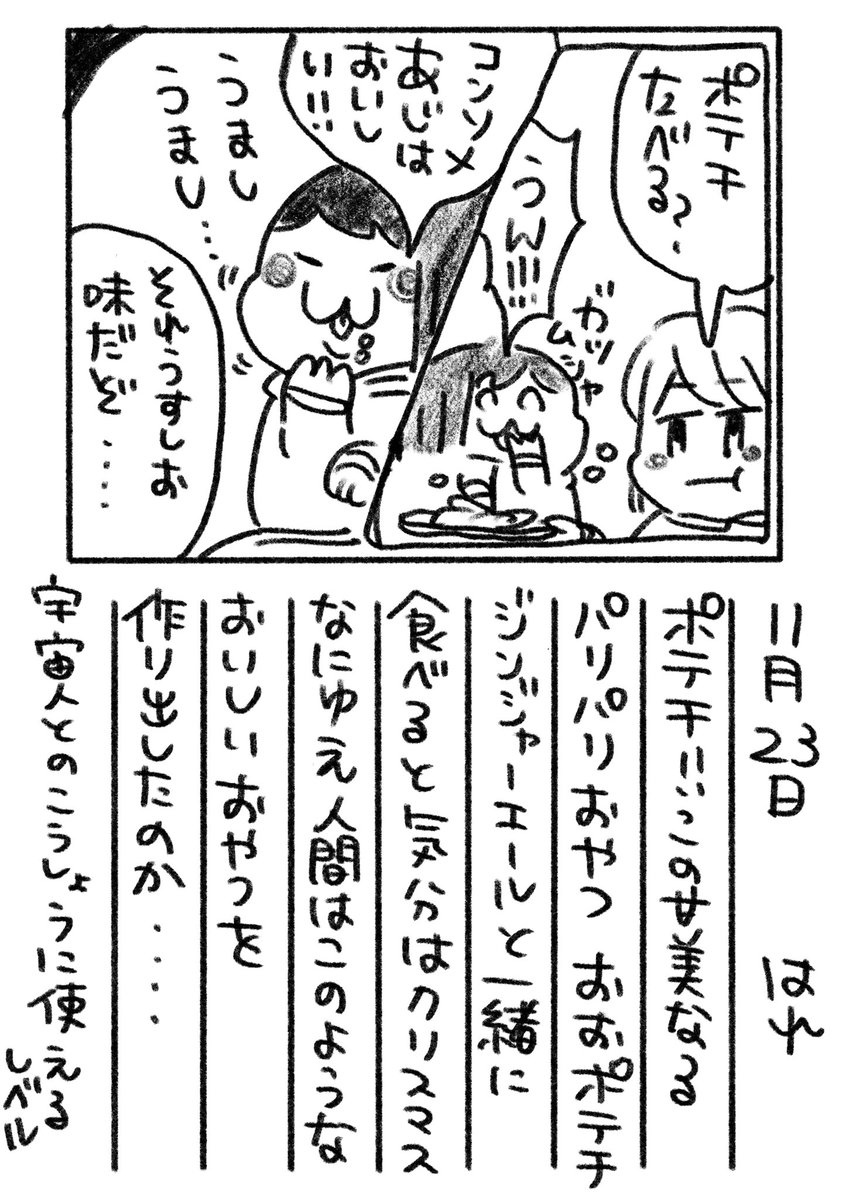 ポテチ
たべる？
うん!!!
ガツッ
ムシャ
コンソメ
あじは
おいし
い!!!
うまし
うまし…
それうすしお
味だぞ‥‥
11月23日　はれ
ポテチ!!!この甘美なる
パリパリおやつ おおポテチ
ジンジャーエールと一緒に
食べると気分はクリスマス
なにゆえ人間はこのような
おいしいおやつを
作り出したのか‥‥
宇宙人とのこうしょうに使える
レベル